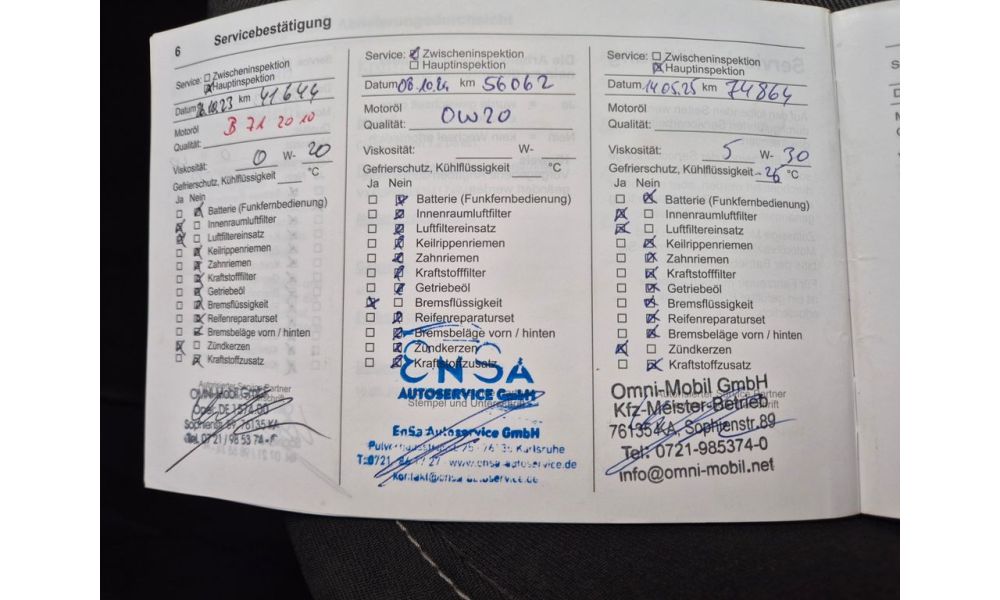 6 Servicebestätigung
Service: Zwischeninspektion
Hauptinspektion
Datum km 41644
Motoröl B 71 20 10
Qualität:
Viskosität: 0 W- 20
Gefrierschutz, Kühlflüssigkeit °C
Ja Nein
Batterie (Funkfernbedienung)
Innenraumluftfilter
Luftfiltereinsatz
Keilrippenriemen
Zahnriemen
Kraftstofffilter
Getriebeöl
Bremsflüssigkeit
Reifenreparaturset
Bremsbeläge vorn / hinten
Zündkerzen
Kraftstoffzusatz
Autorisierter Service Partner
OMNI-MOBIL GmbH
Sophienstr. 89 76135 KA
Tel. 07 21 / 98 53 74 - 0
Service: Zwischeninspektion
Hauptinspektion
Datum 08.10.24 km 56062
Motoröl
Qualität: 0W20
Viskosität: W-
Gefrierschutz, Kühlflüssigkeit °C
Ja Nein
Batterie (Funkfernbedienung)
Innenraumluftfilter
Luftfiltereinsatz
Keilrippenriemen
Zahnriemen
Kraftstofffilter
Getriebeöl
Bremsflüssigkeit
Reifenreparaturset
Bremsbeläge vorn / hinten
Zündkerzen
Kraftstoffzusatz
ENSA
AUTOSERVICE GmbH
Stempel und Unterschrift
EnSa Autoservice GmbH
Karlsruhe
www.ensa-autoservice.de
Kontakt@ensa-autoservice.de
Service: Zwischeninspektion
Hauptinspektion
Datum 14.05.25 km 74864
Motoröl
Qualität:
Viskosität: 5 W- 30
Gefrierschutz, Kühlflüssigkeit -26 °C
Ja Nein
Batterie (Funkfernbedienung)
Innenraumluftfilter
Luftfiltereinsatz
Keilrippenriemen
Zahnriemen
Kraftstofffilter
Getriebeöl
Bremsflüssigkeit
Reifenreparaturset
Bremsbeläge vorn / hinten
Zündkerzen
Kraftstoffzusatz
Omni-Mobil GmbH
Kfz-Meister-Betrieb
76135 KA, Sophienstr.89
Tel: 0721-985374-0
info@omni-mobil.net